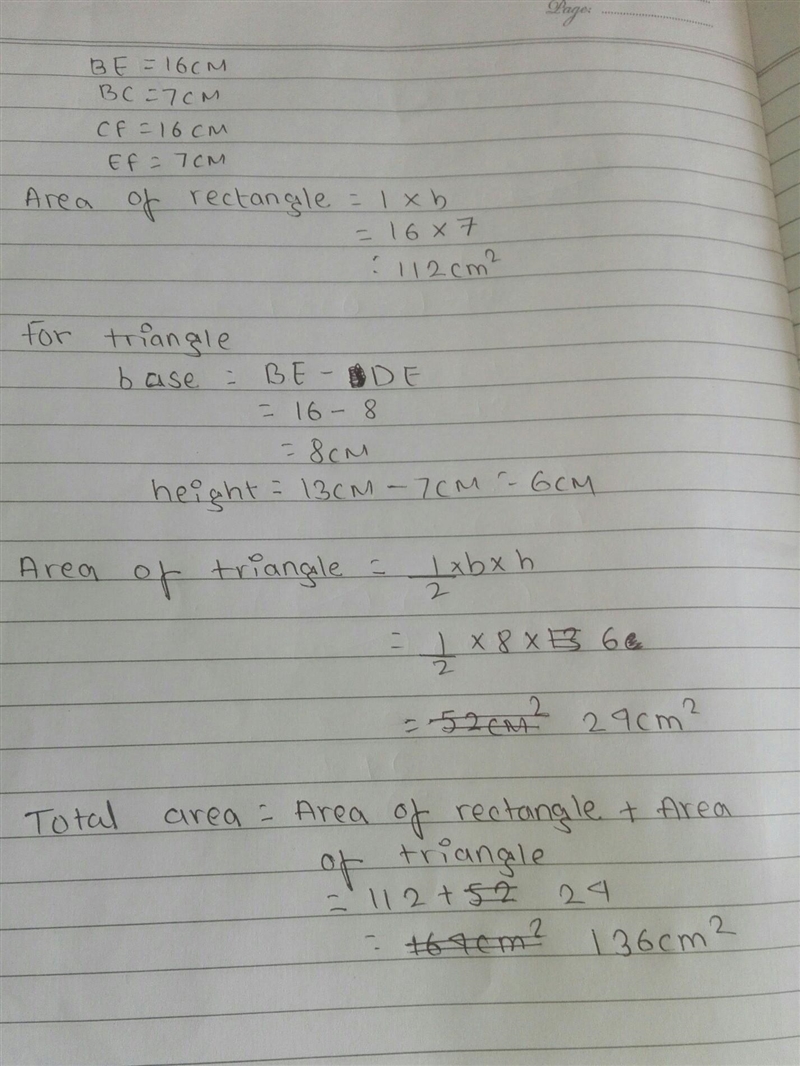 Page:
BE = 16CM
BC = 7CM
CF = 16CM
EF = 7CM
Area of rectangle = l × b
= 16 × 7
= 112cm²
For triangle
base = BE - DE
= 16 - 8
= 8CM
height = 13CM - 7CM = 6CM
Area of triangle = 1/2 × b × h
= 1/2 × 8 × 13 6
= 52CM² 24cm²
Total area = Area of rectangle + Area
of triangle
= 112 + 52 24
= 164cm² 136cm²